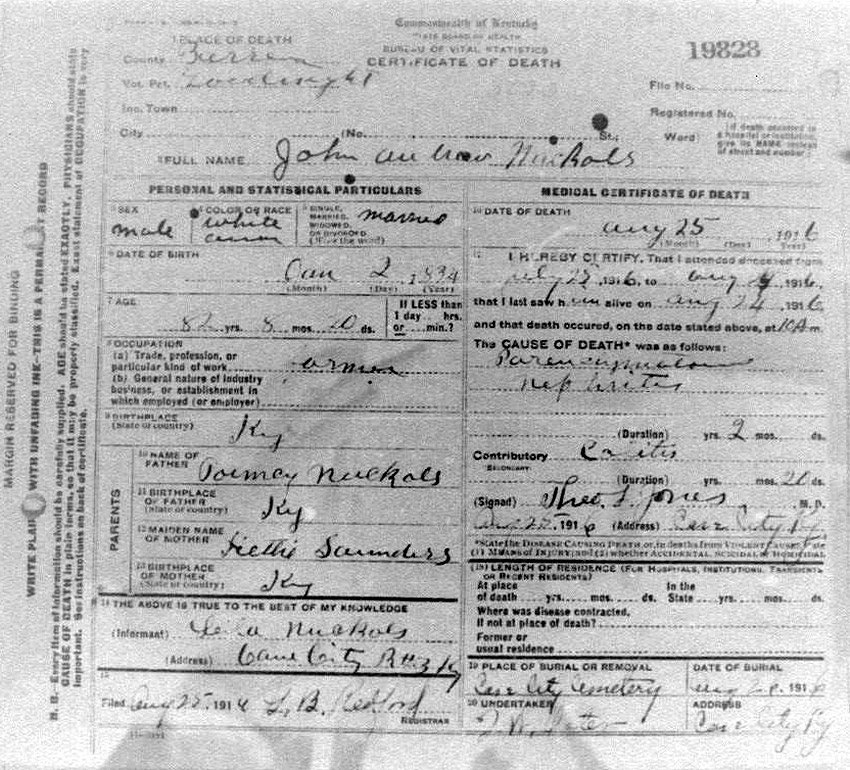 Commonwealth of Kentucky
STATE BOARD OF HEALTH
BUREAU OF VITAL STATISTICS
CERTIFICATE OF DEATH
19828
1 PLACE OF DEATH
County
Vot. Pct.
Inc. Town
City (No. St.; Ward)
File No.
Registered No.
(If death occurred in a hospital or institution, give its NAME instead of street and number)
2 FULL NAME John Nuckols
PERSONAL AND STATISTICAL PARTICULARS
3 SEX male
4 COLOR OR RACE white
5 SINGLE, MARRIED, WIDOWED, OR DIVORCED (Write the word) married
6 DATE OF BIRTH 2, 1834
(Month) (Day) (Year)
7 AGE 82 yrs. 8 mos. 20 ds.
If LESS than 1 day hrs. or min.?
8 OCCUPATION
(a) Trade, profession, or particular kind of work
(b) General nature of industry business, or establishment in which employed (or employer)
9 BIRTHPLACE
(State or country) Ky
PARENTS
10 NAME OF FATHER Nuckols
11 BIRTHPLACE OF FATHER
(State or country) Ky
12 MAIDEN NAME OF MOTHER Saunders
13 BIRTHPLACE OF MOTHER
(State or country) Ky
14 THE ABOVE IS TRUE TO THE BEST OF MY KNOWLEDGE
(Informant) Nuckols
(Address) Cave City Ky
15
Filed Aug 25 1916 L. B. Redford
REGISTRAR
MEDICAL CERTIFICATE OF DEATH
16 DATE OF DEATH Aug 25, 1916
(Month) (Day) (Year)
17 I HEREBY CERTIFY, That I attended deceased from
July 25 1916, to Aug 1916,
that I last saw him alive on Aug 24 1916
and that death occured, on the date stated above, at 10 A m.
The CAUSE OF DEATH* was as follows:
Nephritis
(Duration) yrs. 2 mos. ds.
Contributory
SECONDARY
(Duration) yrs. mos. 20 ds.
(Signed) Theo. Jones M. D.
1916 (Address) Cave City Ky
*State the DISEASE CAUSING DEATH or, in deaths from VIOLENT CAUSES, state
(1) MEANS OF INJURY; and (2) whether ACCIDENTAL, SUICIDAL or HOMICIDAL
18 LENGTH OF RESIDENCE (FOR HOSPITALS, INSTITUTIONS, TRANSIENTS OR RECENT RESIDENTS)
At place of death yrs. mos. ds. In the State yrs. mos. ds.
Where was disease contracted,
If not at place of death?
Former or usual residence
19 PLACE OF BURIAL OR REMOVAL
Cave City Cemetery
DATE OF BURIAL
1916
20 UNDERTAKER
ADDRESS
Cave City Ky
MARGIN RESERVED FOR BINDING
WRITE PLAINLY WITH UNFADING INK—THIS IS A PERMANENT RECORD
N. B.—Every item of information should be carefully supplied. AGE should be stated EXACTLY, PHYSICIANS should state
CAUSE OF DEATH in plain terms, so that it may be properly classified. Exact statement of OCCUPATION is very
important. See instructions on back of certificate.